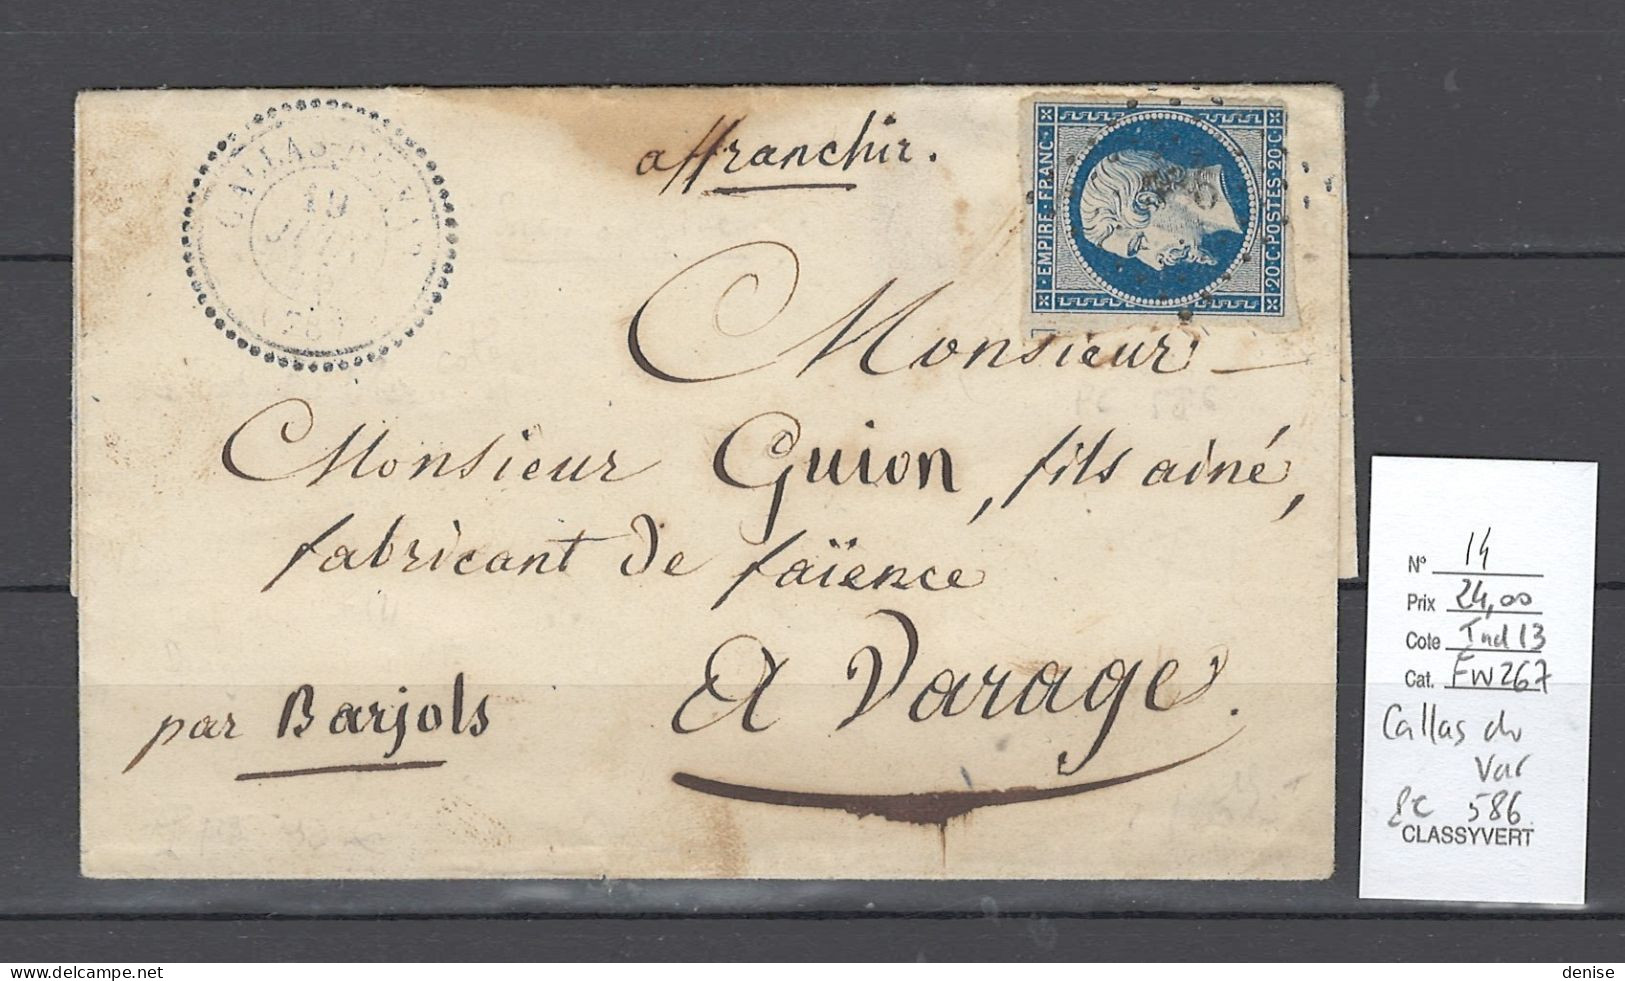 CALLAS-DU-VAR
affranchir.
EMPIRE·FRANC·
20·C·POSTES·20·C
Monsieur
Monsieur Guion, fils ainé,
fabricant de faïence
A Varage.
par Barjols
N° 14
Prix 24,00
Cote Ind 13
Cat. FW267
Callas du
Var
586
CLASSYVERT
denise